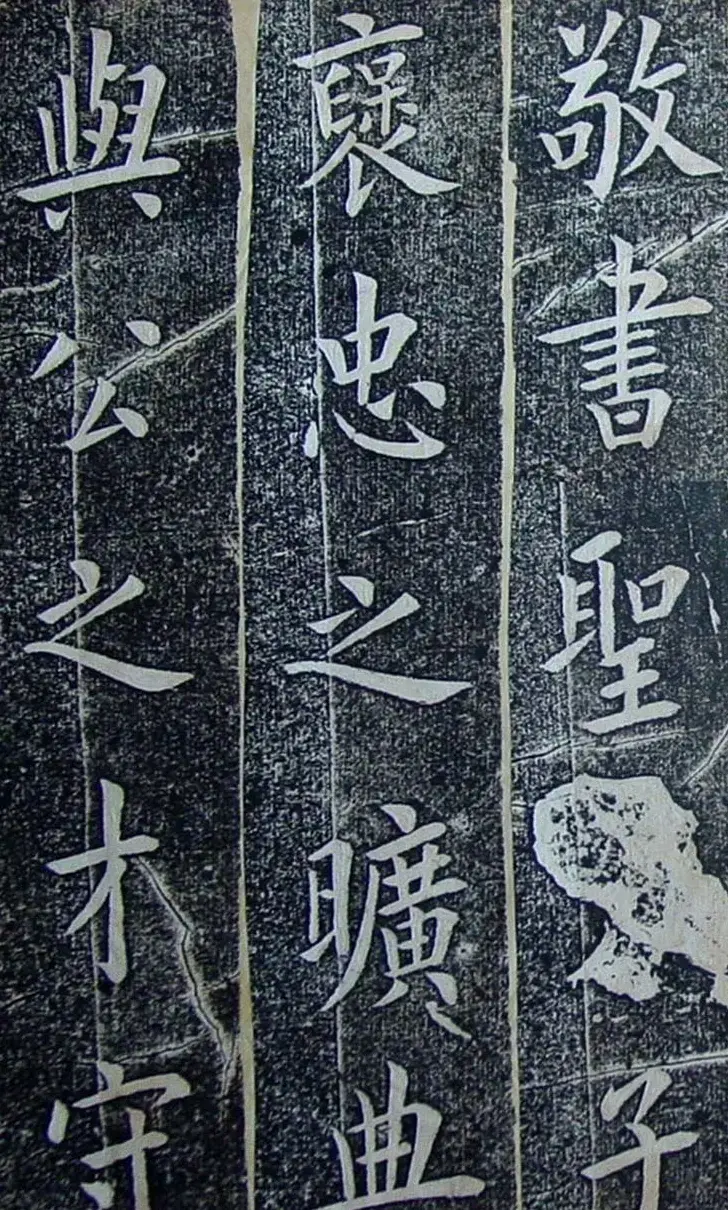 敬書聖子
褒忠之曠典
與公之才守